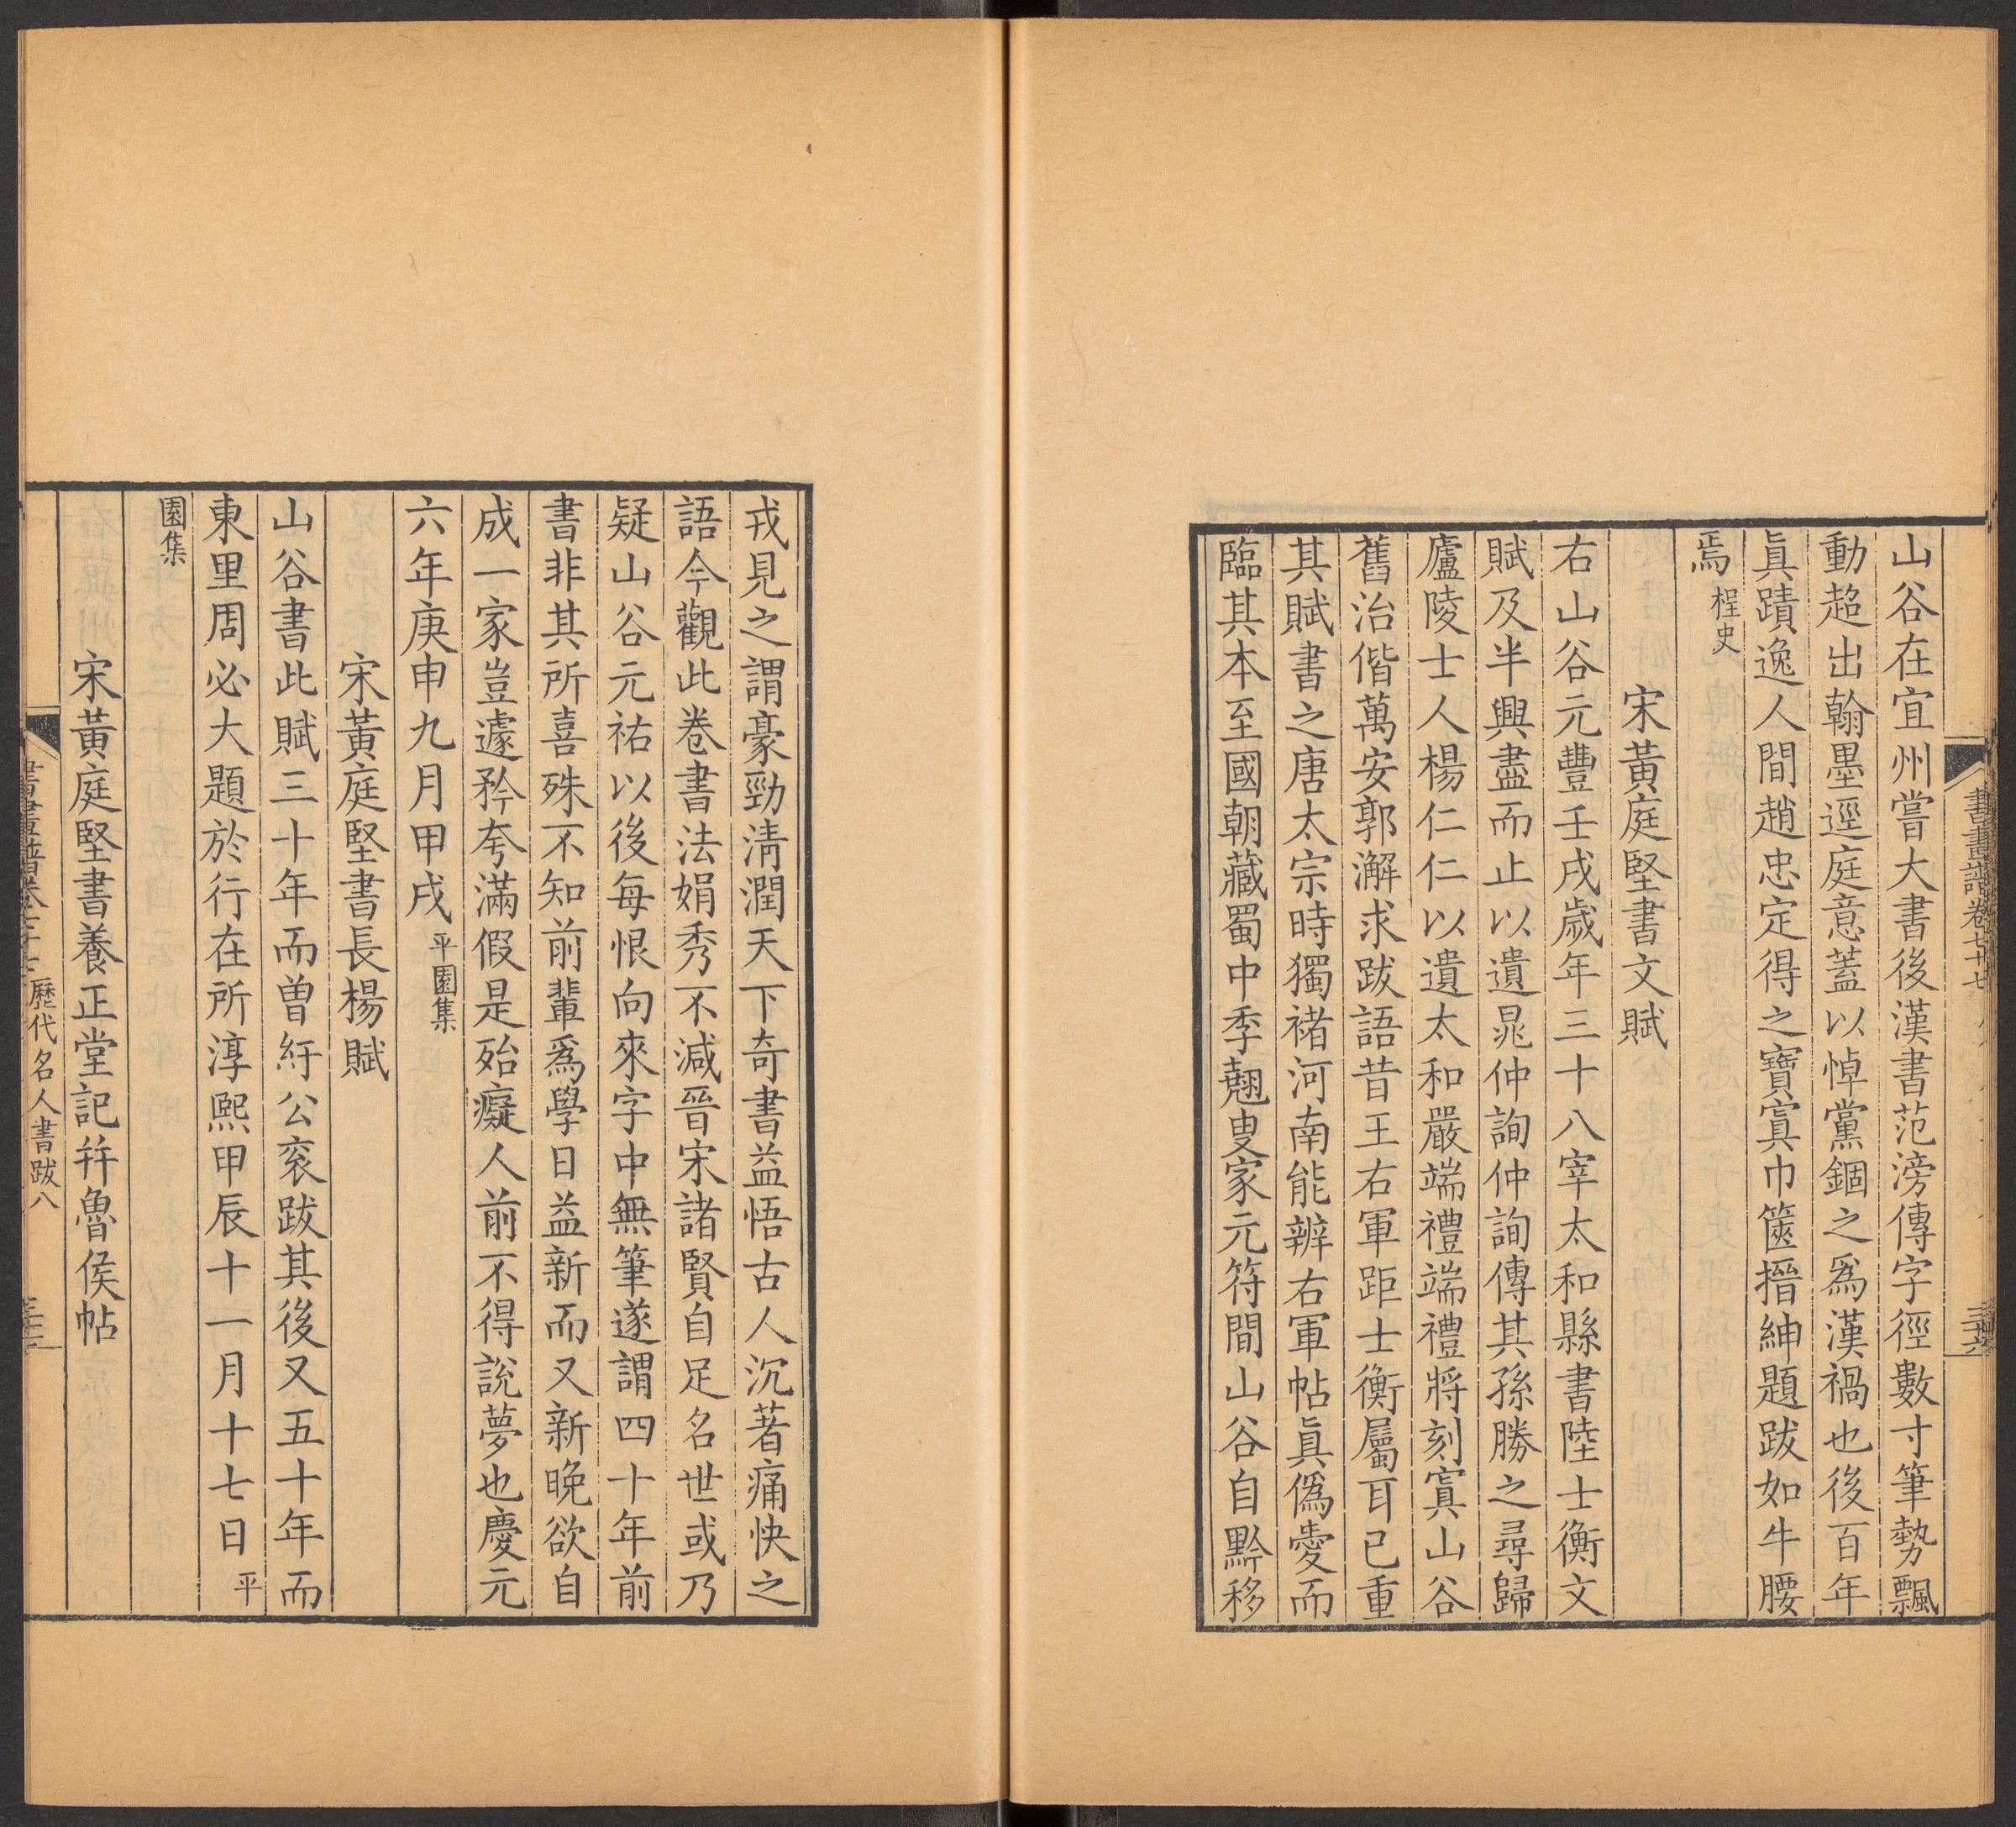 山谷在宜州嘗大書後漢書范滂傳字徑數寸筆勢飄
動超出翰墨逕庭意蓋以悼黨錮之爲漢禍也後百年
眞蹟逸人間趙忠定得之寶寘巾篋搢紳題跋如牛腰
焉 桯史
宋黃庭堅書文賦
右山谷元豐壬戌歲年三十八宰太和縣書陸士衡文
賦及半興盡而止以遺晁仲詢仲詢傳其孫勝之尋歸
廬陵士人楊仁仁以遺太和嚴端禮端禮將刻寘山谷
舊治偕萬安郭澥求跋語昔王右軍距士衡屬耳已重
其賦書之唐太宗時獨褚河南能辨右軍帖眞僞愛而
臨其本至國朝藏蜀中季翹叟家元符間山谷自黔移
戎見之謂豪勁淸潤天下奇書益悟古人沉著痛快之
語今觀此卷書法娟秀不減晉宋諸賢自足名世或乃
疑山谷元祐以後每恨向來字中無筆遂謂四十年前
書非其所喜殊不知前輩爲學日益新而又新晚欲自
成一家豈遽矜夸滿假是殆癡人前不得說夢也慶元
六年庚申九月甲戌 平園集
宋黃庭堅書長楊賦
山谷書此賦三十年而曾紆公袞跋其後又五十年而
東里周必大題於行在所淳熙甲辰十一月十七日 平
園集
宋黃庭堅書養正堂記幷魯侯帖
書畫譜卷七十七
歷代名人書跋八